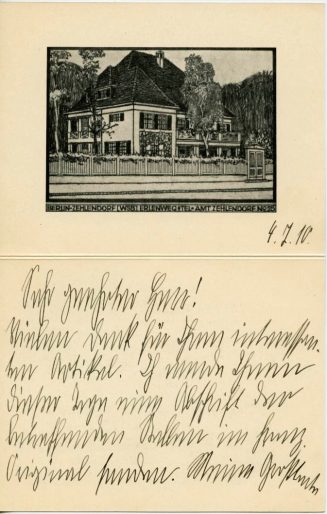 BERLIN-ZEHLENDORF (WSB) ERLENWEG • TEL • AMT ZEHLENDORF No
4.7.10.
Sehr geehrter Herr!
Vielen Dank für Ihren interessan-
ten Artikel. Ich werde Ihnen
dieser Tage eine Abschrift der
betreffenden Stellen im franz.
Original senden. Meine